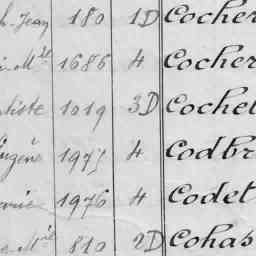 h. Jean 180 1D Cocher
Mel 1686 4 Cocher
tiste 1019 3D Cochet
Eugène 1977 4 Codbr
1976 4 Codet
Mel 810 2D Cohas